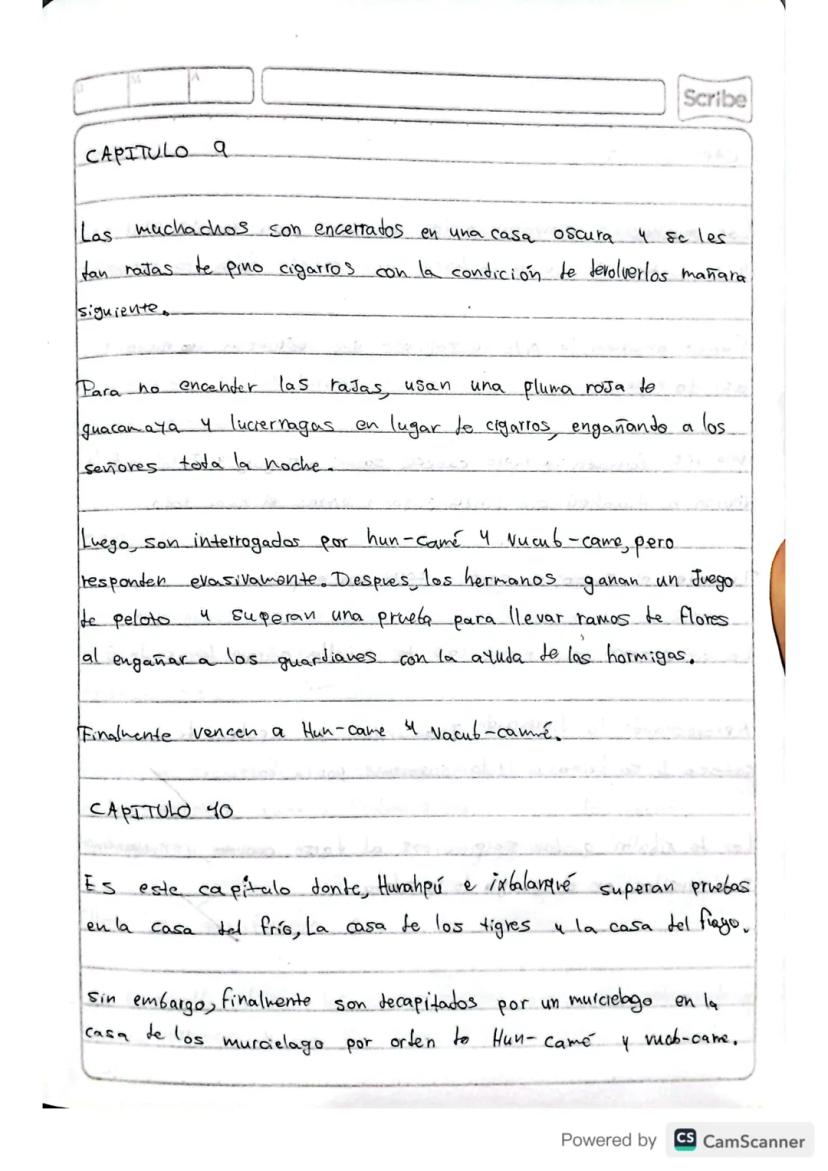 Scribe
CAPITULO 9
Los muchachos son encerrados en una casa oscura y se les
dan rajas de pino cigarros con la condición de devolverlos mañara
siguiente.
Para no encender las rajas, usan una pluma roja de
guacamaya y luciernagas en lugar de cigarros, engañando a los
señores toda la noche.
Luego, son interrogados por hun-camé y Vucub-came, pero
responden evasivamente. Despues, los hermanos ganan un Juego
de peloto y superan una prueba para llevar ramos de flores
al engañar a los guardianes con la ayuda de las hormigas.
Finalmente vencen a Hun-came y Vacub-camé.
CAPITULO 10
Es este capitulo donde, Hunahpú e ixbalanqué superan pruebas
en la casa del frío, La casa de los tigres y la casa del fuego.
sin embargo, finalmente son decapitados por un murcielago en la
casa de los murcielago por orden de Hun-camé y vucb-came.
Powered by CS CamScanner